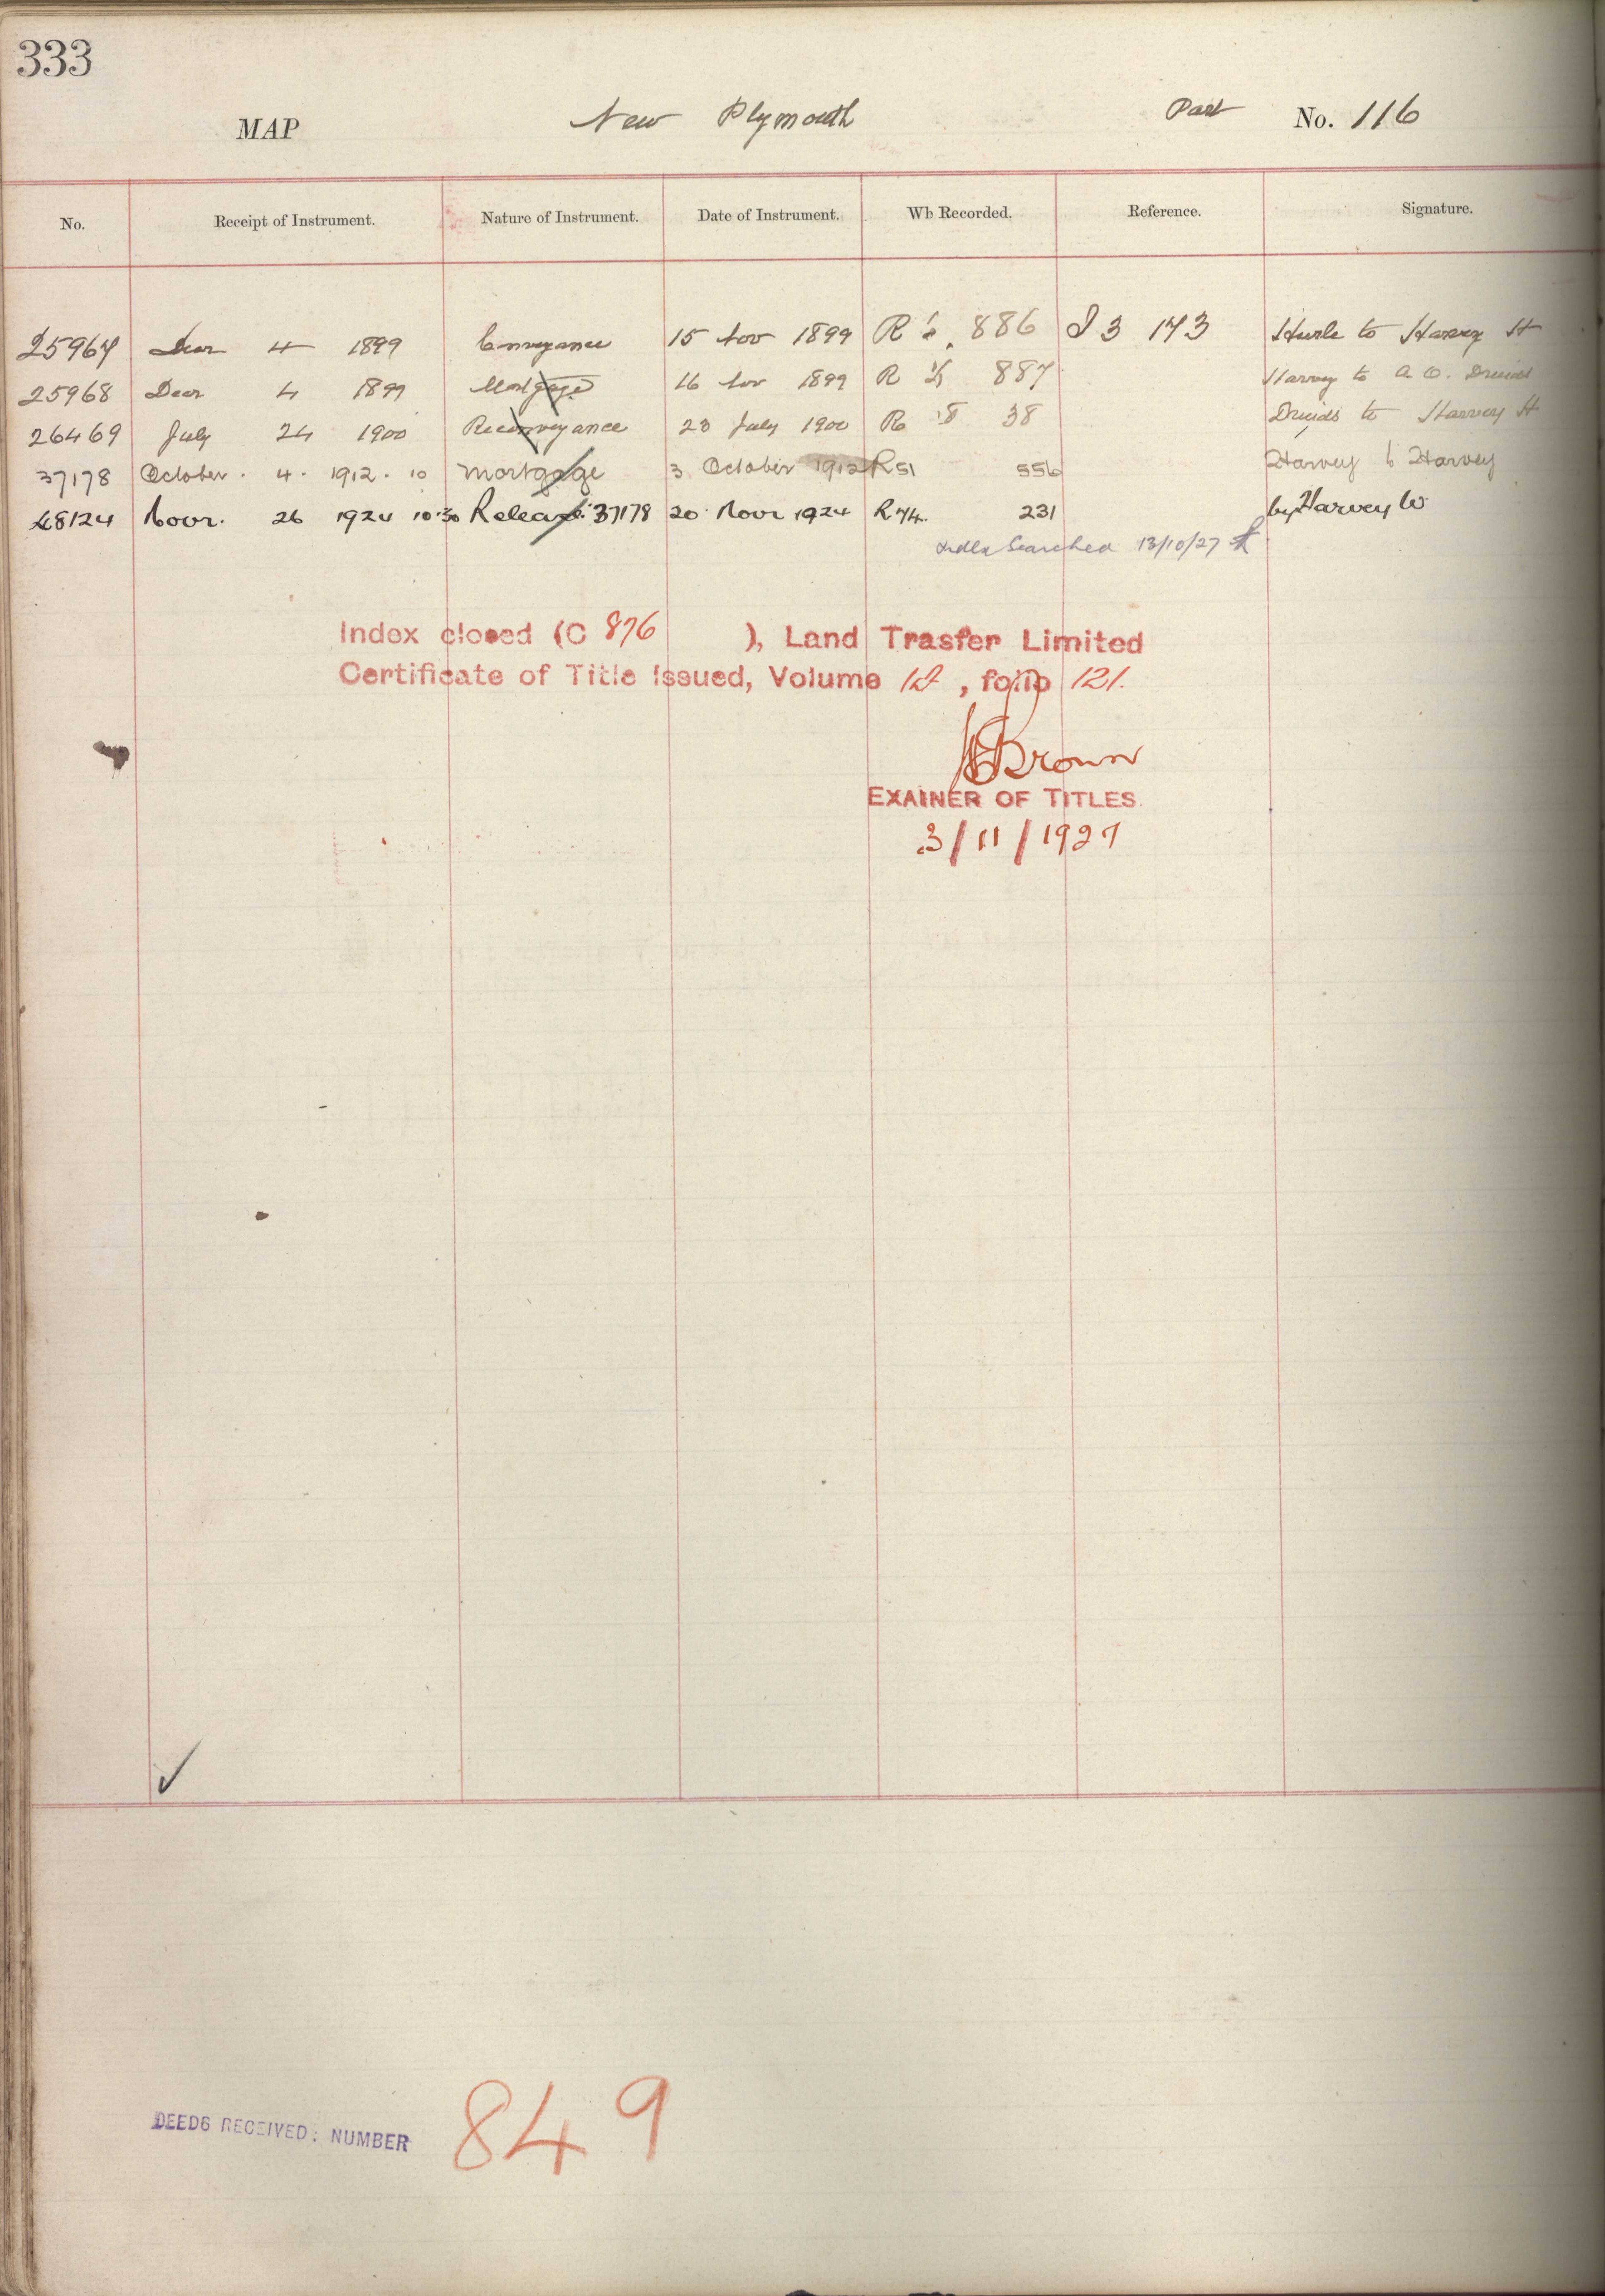 333
MAP New Plymouth Part No. 116
No. Receipt of Instrument. Nature of Instrument. Date of Instrument. Wh Recorded. Reference. Signature.
25967 Decr 4 1899 Conveyance 15 Nov 1899 R 886 I 3 173 Hurle to Harvey H
25968 Decr 4 1899 Mortgage 16 Nov 1899 R 887 Harvey to A. O. Druids
26469 July 24 1900 Reconveyance 23 July 1900 R 38 Druids to Harvey H
37178 October. 4. 1912. 10 Mortgage 3 October 1912 R 51 556 Harvey to Harvey
48124 Novr. 26 1924 10.30 Release 37178 20 Novr 1924 R 74. 231 by Harvey W
Index Searched 13/10/27
Index closed (C 876 ), Land Trasfer Limited
Certificate of Title Issued, Volume , folio 121.
Brown
EXAINER OF TITLES.
3/11/1927
DEEDS RECEIVED: NUMBER 849